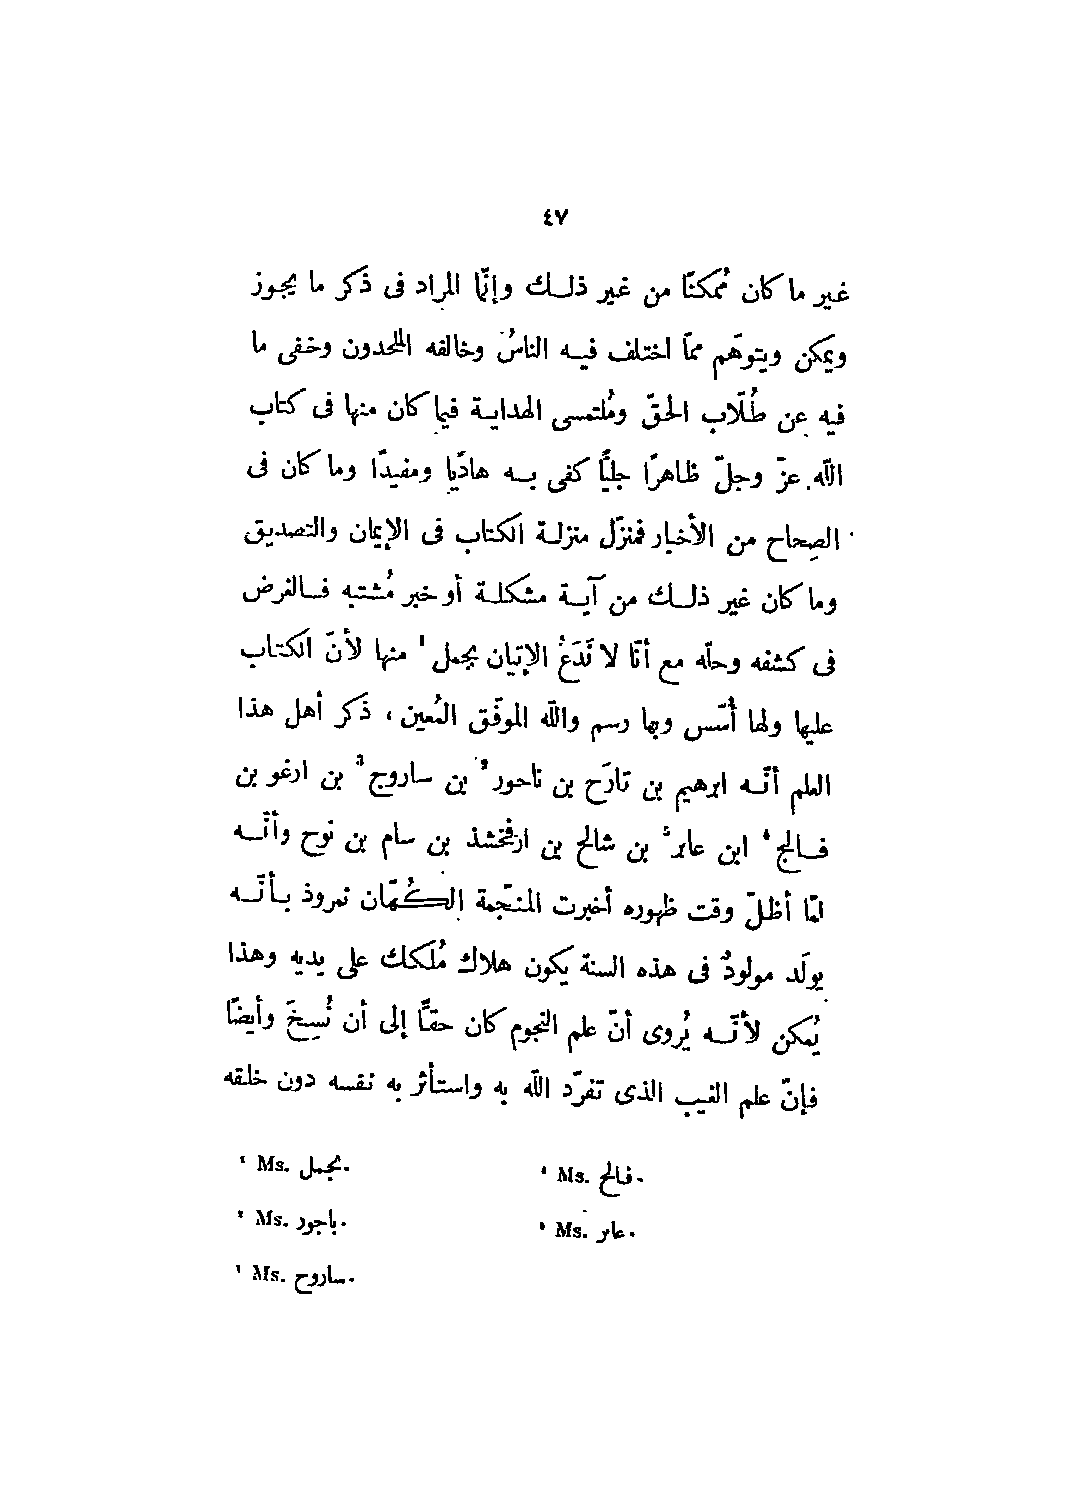 ٤٧
غير ما كان مُمكنًا من غير ذلك وإنّما المراد فى ذكر ما يجوز
ويمكن ويتوهّم ممّا اختلف فيه الناسُ وخالفه الملحدون وخفى ما
فيه عن طُلّاب الحقّ ومُلتمسى الهداية فيما كان منها فى كتاب
اللّه عزّ وجلّ ظاهرًا جليًّا كفى به هاديًا ومفيدًا وما كان فى
الصِحاح من الأخبار فمنزّل منزلة الكتاب فى الإيمان والتصديق
وما كان غير ذلك من آية مشكلة أو خبر مُشتبه فالغرض
فى كشفه وحلّه مع أنّا لا نَدَعُ الإتيان بجمل ¹ منها لأنّ الكتاب
عليها ولها أُسّس وبها رسم واللّه الموفّق المُعين ، ذكر أهل هذا
العلم أنّه ابرهيم بن تارَح بن ناحور ² بن ساروج ³ بن ارغو بن
فالج ⁴ ابن عابر ⁵ بن شالخ بن ارفخشذ بن سام بن نوح وأنّه
لمّا أظلّ وقت ظهوره أخبرت المنجّمة الكُهّان نمروذ بأنّه
يولَد مولودٌ فى هذه السنة يكون هلاك مُلكك على يديه وهذا
يُمكن لأنّه يُروى أنّ علم النجوم كان حقًّا إلى أن نُسِخَ وأيضًا
فإنّ علم الغيب الذى تفرّد اللّه به واستأثر به نفسه دون خلقه
¹ Ms. يجمل.
² Ms. باجور.
³ Ms. ساروح.
⁴ Ms. فالح.
⁵ Ms. عابر.